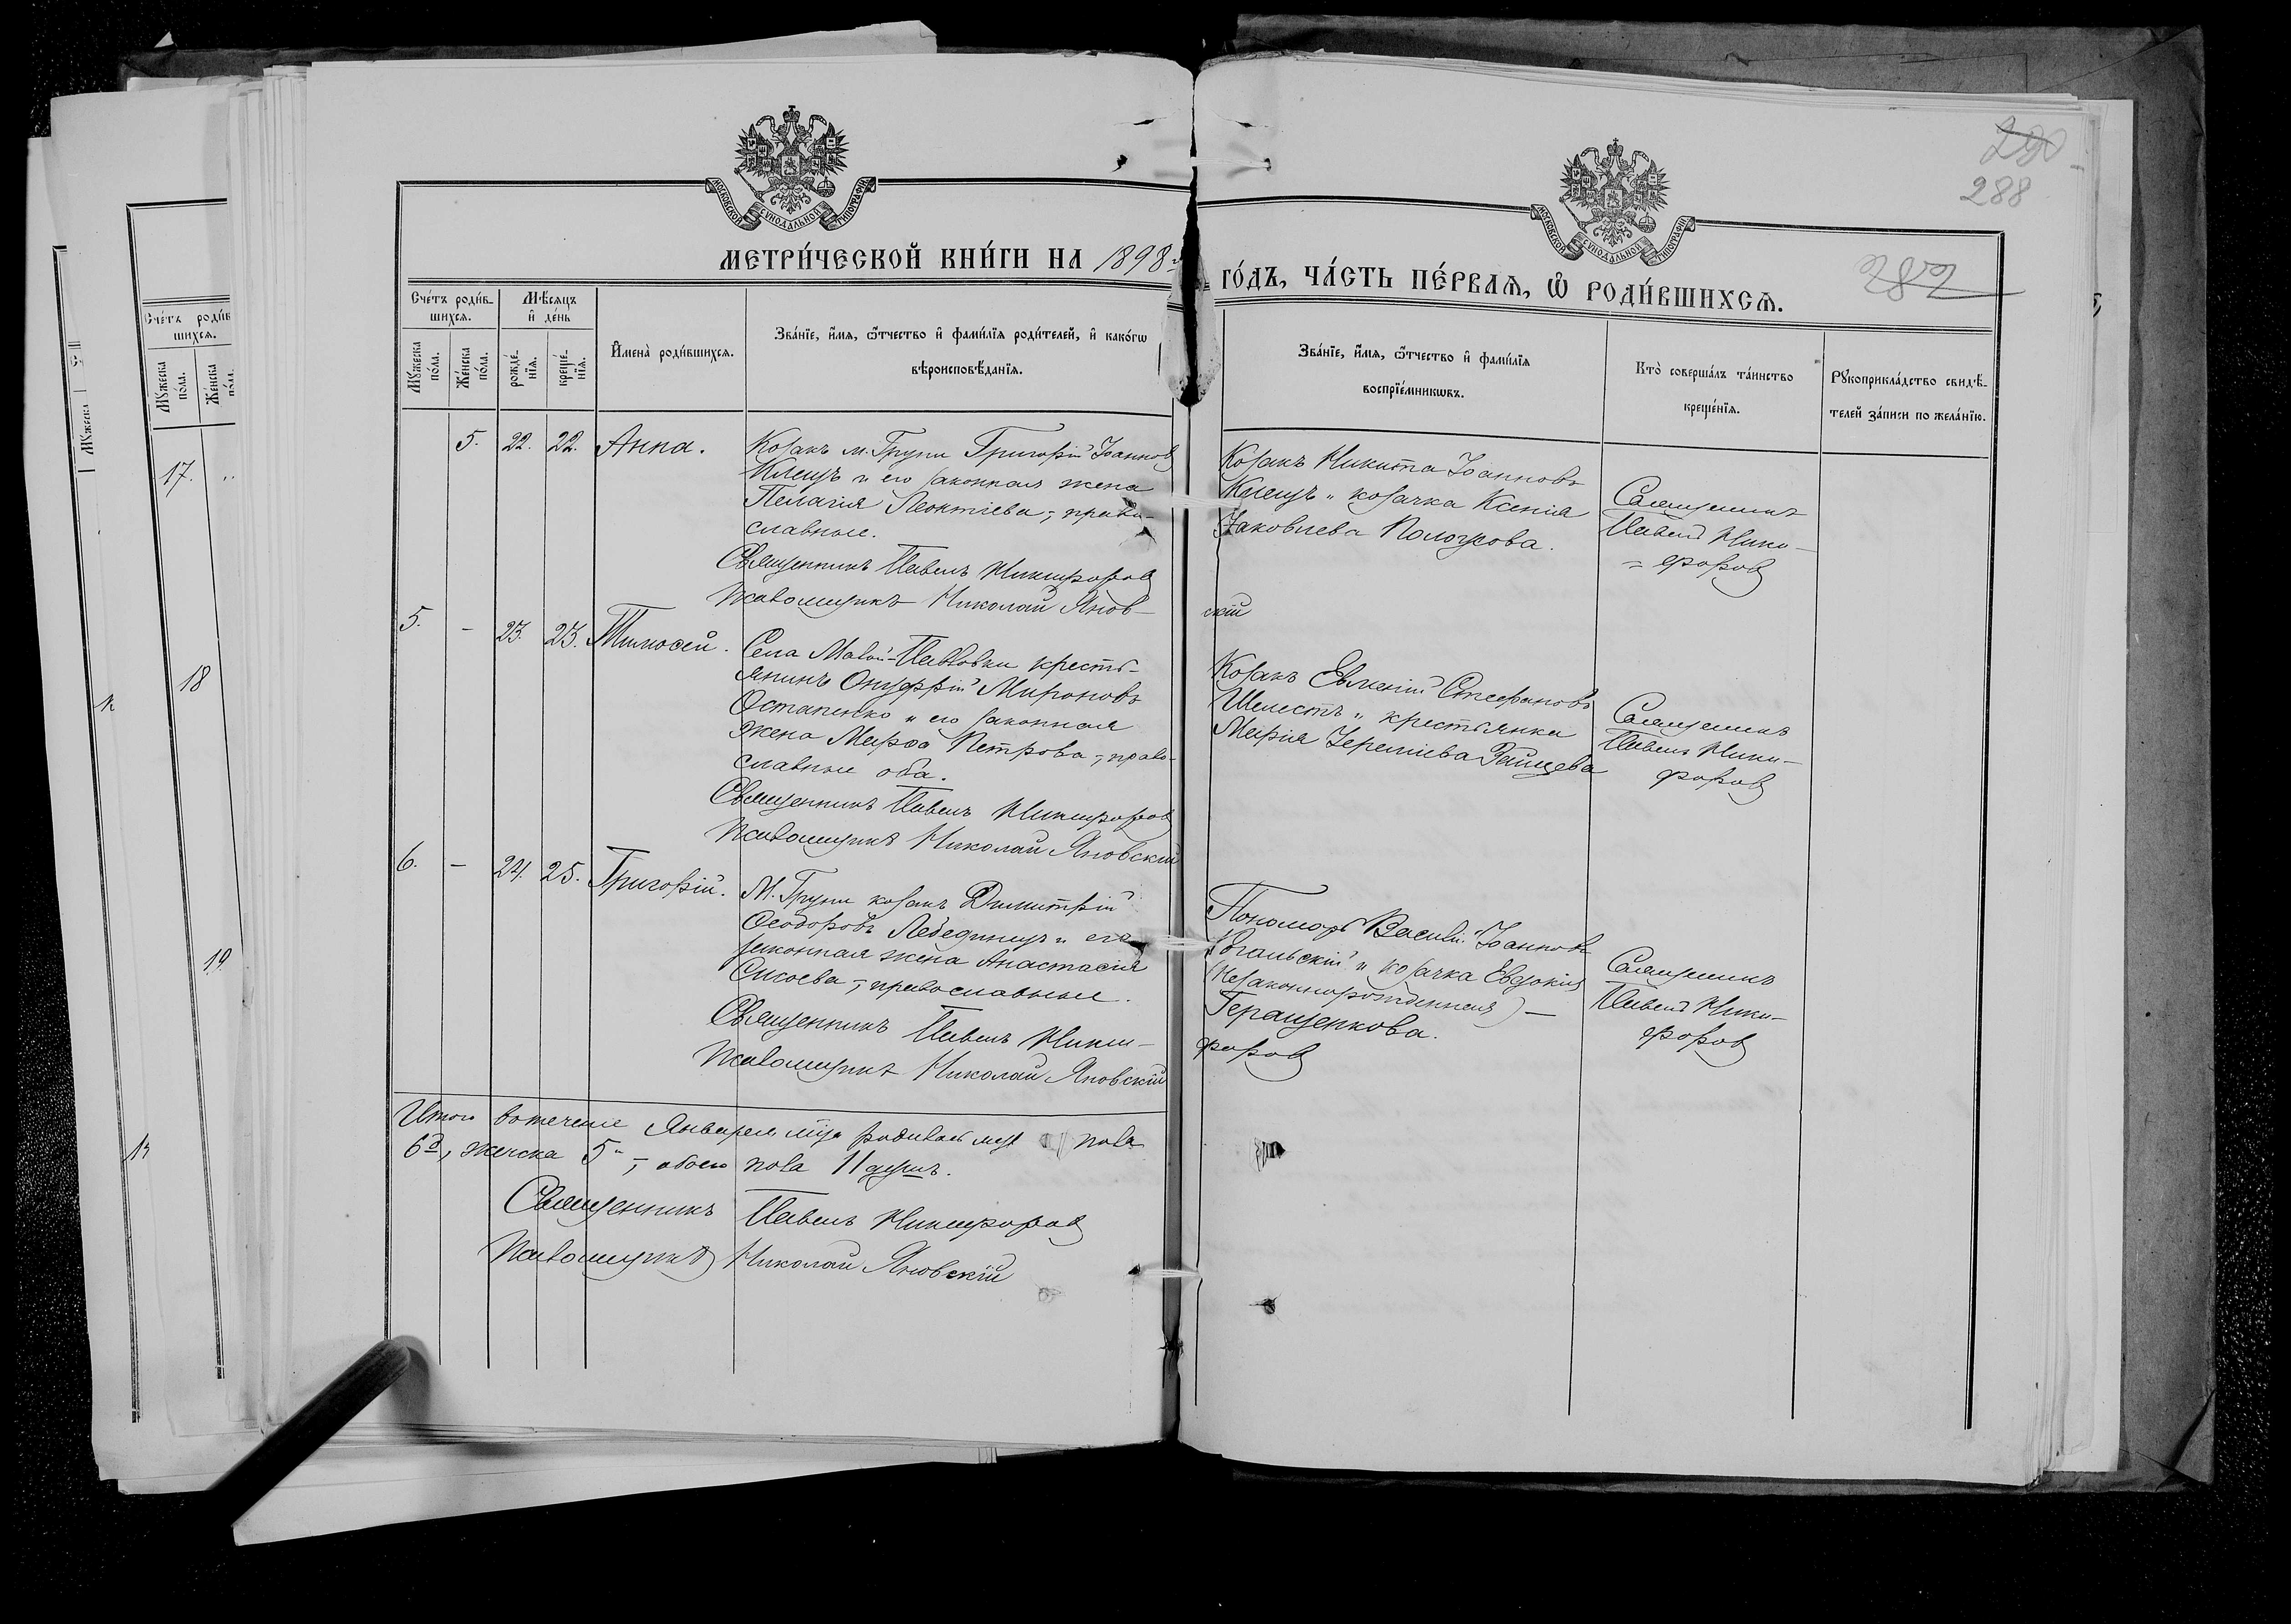 290
288
282
МОСКОВСКОЙ СѴНОДАЛЬНОЙ ТИПОГРАФІИ
МОСКОВСКОЙ СѴНОДАЛЬНОЙ ТИПОГРАФІИ
МЕТРИ́ЧЕСКОЙ КНИ́ГИ НА 1898й
ГО́ДЪ, ЧА́СТЬ ПЕ́РВАѦ, Ѡ҆ РОДИ́ВШИХСѦ.
Сче́тъ роди́в-
шихсѧ.
Мꙋ́жеска по́ла.
Же́нска по́ла.
Мѣ́сѧцъ
и҆ де́нь
рожде́-
нїѧ.
креще́-
нїѧ.
И҆мена̀ роди́вшихсѧ.
Зва́нїе, и҆́мѧ, ѻ҆́тчество и҆ фами́лїѧ роди́телей, и҆ како́гѡ
вѣроисповѣ́данїѧ.
Зва́нїе, и҆́мѧ, ѻ҆́тчество и҆ фами́лїѧ
воспрїе́мникѡвъ.
Кто̀ соверша́лъ та́инство
креще́нїѧ.
Рꙋкоприкла́дство свидѣ́-
телей за́писи по жела́нїю.
5. 22. 22. Анна.
Козакъ м. Груни Григорій Іоанновъ
Клещъ и его законная жена
Пелагія Леонтіева; право-
славные.
Священникъ Павелъ Никифоровъ
Псаломщикъ Николай Янов-
скій
Козакъ Никита Іоанновъ
Клещъ и козачка Ксенія
Іаковлева
Священникъ
Павелъ Ники-
форовъ
5. - 23. 23. Тимоѳей.
Села Малой-Павловки кресть-
янинъ Онуфрій Мироновъ
Остапенко и его законная
жена Марѳа Петрова; право-
славные оба.
Священникъ Павелъ Никифоровъ
Псаломщикъ Николай Яновскій
Козакъ Евгеній Стефановъ
Шелестъ и крестьянка
Марія Іереміева
Священникъ
Павелъ Ники-
форовъ
6. - 24. 25. Григорій.
М. Груни козакъ Димитрій
Ѳеодоровъ Лебединецъ и его
законная жена Анастасія
Сисоева; православные.
Священникъ Павелъ Ники-
форовъ
Псаломщикъ Николай Яновскій
Пономарь Василій Іоанновъ
и козачка Евдокія
(Незаконнорожденная) —
Геращенкова.
Священникъ
Павелъ Ники-
форовъ
Итого въ теченіе Января мца родилось муж пола
6ть, женска 5ть, обоего пола 11 душъ.
Священникъ Павелъ Никифоровъ
Псаломщикъ Николай Яновскій
Сче́тъ роди́в
шихсѧ.
Мꙋ́жеска
по́ла.
Же́нска
Мꙋ́жеска
17.
18
19.